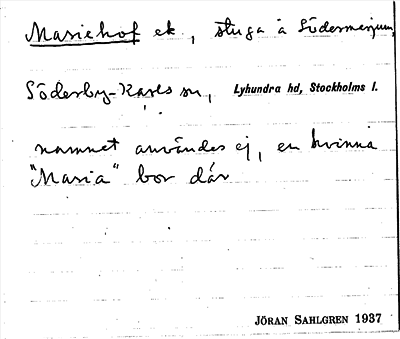 Mariehof ek., stuga å Södermerjum,
Söderby-Karls sn, Lyhundra hd, Stockholms l.
namnet användes ej, en kvinna
"Maria" bor där
JÖRAN SAHLGREN 1937